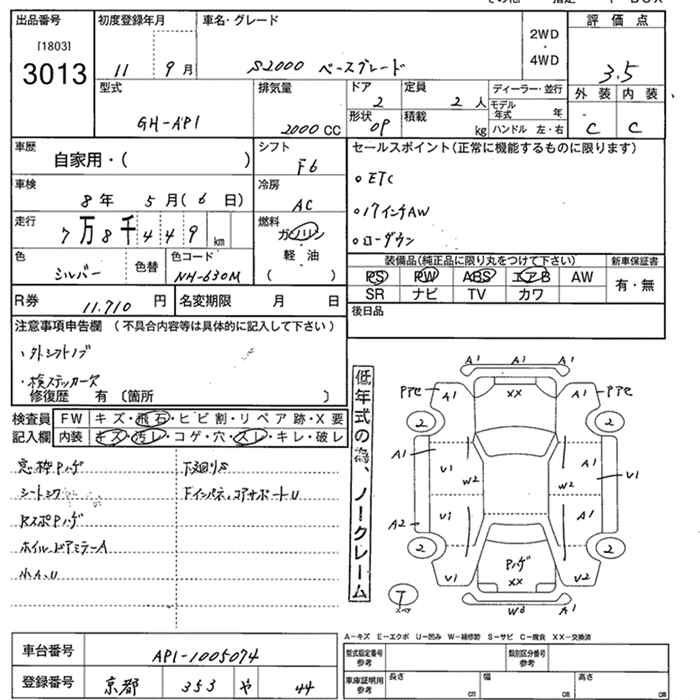 出品番号
[1803]
3013
初度登録年月
11 9月
車名・グレード
S2000 ベースグレード
2WD
・
4WD
評価点
3.5
外装 内装
C C
型式
GH-AP1
排気量
2000 CC
ドア
2
形状
OP
定員
2人
積載
kg
ディーラー・並行
モデル年式 年
ハンドル 左・右
車歴
自家用・( )
シフト
F6
セールスポイント(正常に機能するものに限ります)
。ETC
。17インチAW
。ローダウン
車検
8年 5月(6日)
冷房
AC
走行
7万8千449 km
燃料
ガソリン
軽油
( )
色
シルバー
色替
色コード
NH-630M
装備品(純正品に限り丸をつけて下さい)
PS PW ABS エアB AW
SR ナビ TV カワ
新車保証書
有・無
R券 11.710円
名変期限 月 日
後日品
注意事項申告欄(不具合内容等は具体的に記入して下さい)
・外シフトノブ
・検ステッカーズ
修復歴 有 〔箇所 〕
低年式の為、ノークレーム
検査員記入欄
FW キズ・飛石・ヒビ割・リペア跡・X要
内装 キズ・汚レ・コゲ・穴・スレ・キレ・破レ
窓枠Pハゲ
下廻りS
Fインパネ、コアサポートU
RスポPハゲ
小A、U
A1 A1 A1
Pアセ A1 XX A1 Pアセ
2 2
A1 A1
U1 W2 W2 U1
A2 U1 A1
2 2
U1 Pハゲ XX U2
T
スペア
W3 A1
A-キズ E-エクボ U-凹み W-補修跡 S-サビ C-腐食 XX-交換済
車台番号
AP1-1005074
登録番号
京都 353 や 44
型式指定番号
参考
類別区分番号
参考
車庫証明用
参考
長さ cm
幅 cm
高さ cm